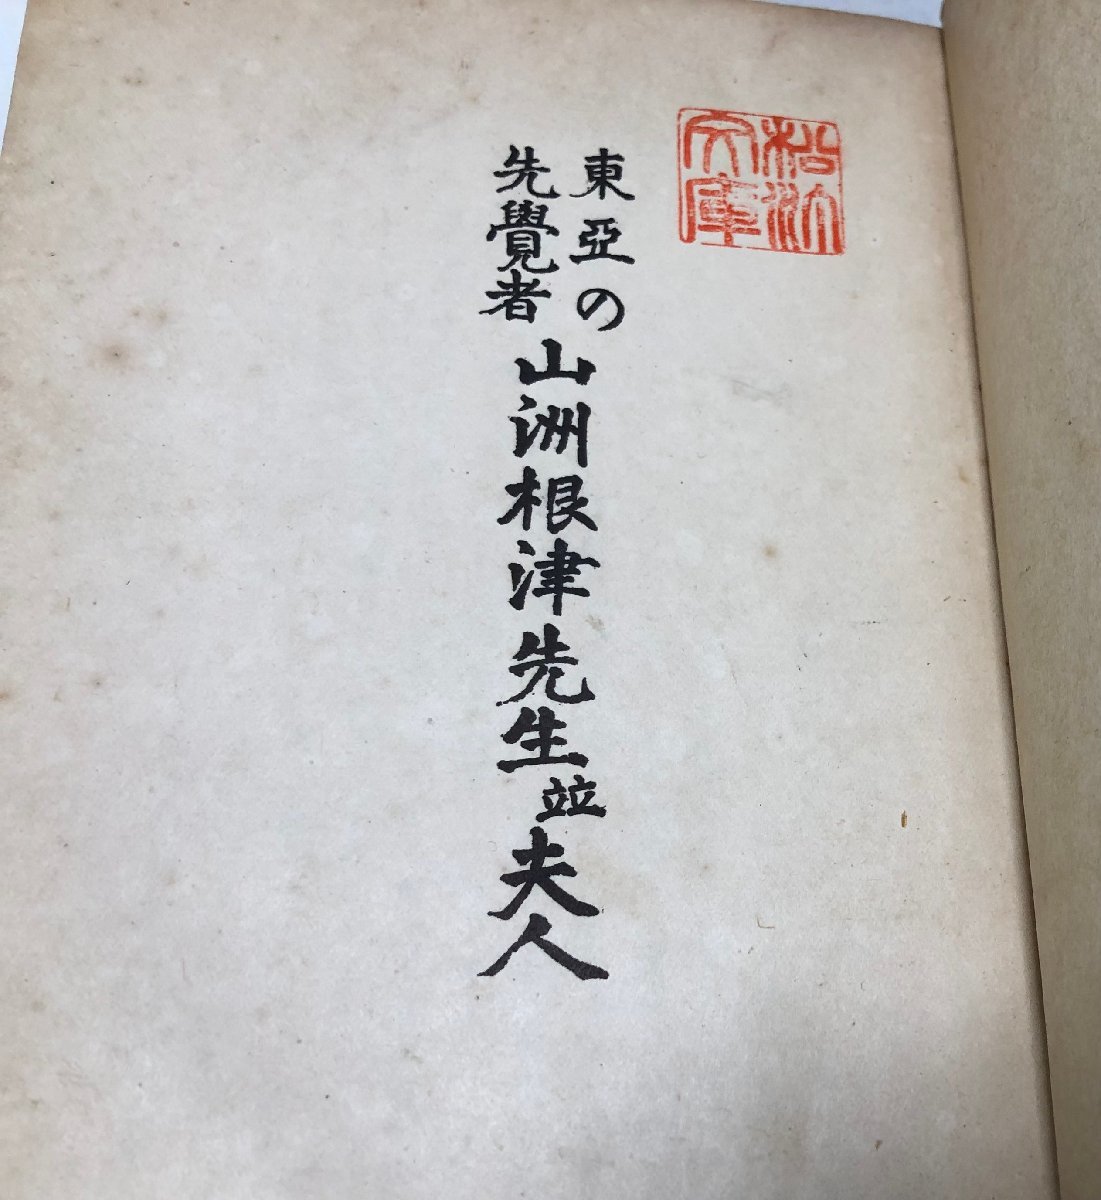 東亞の
先覺者
山洲根津先生竝夫人
文庫